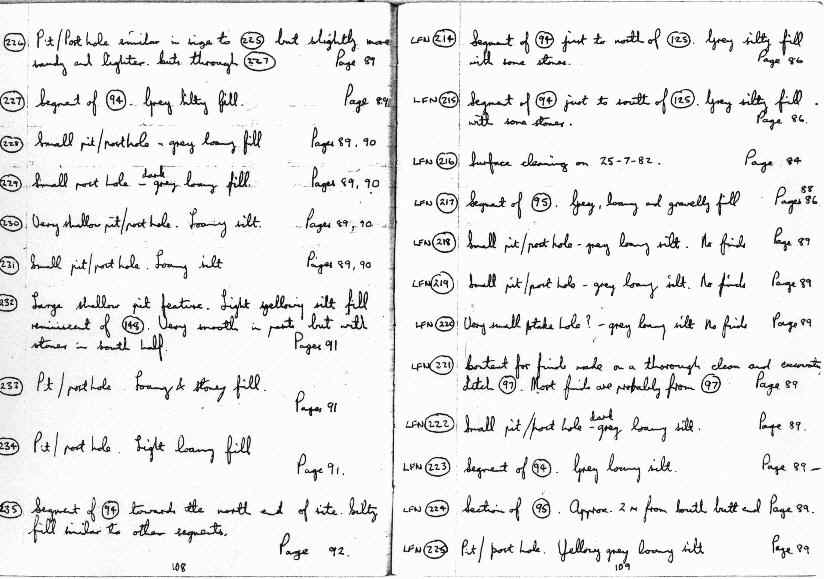 (226) Pit/Post hole similar in size to (225) but slightly more
sandy and lighter. Cuts through (227) Page 89
(227) Segment of (94). Grey silty fill. Page 89
(228) Small pit/posthole - grey loamy fill Pages 89, 90
(229) Small post hole - dark grey loamy fill. Pages 89, 90
(230) Very shallow pit/post hole. Loamy silt. Pages 89, 90
(231) Small pit/post hole. Loamy silt Pages 89, 90
(232) Large shallow pit feature. Light yellowy silt fill
reminiscent of (148). Very smooth in parts but with
stones in south half. Pages 91
(233) Pit/post hole Loamy & stoney fill.
Pages 91
(234) Pit/post hole. Light loamy fill
Page 91.
(235) Segment of (94) towards the north end of site. Silty
fill similar to other segments.
Page 92.
108
LFN (214) Segment of (94) just to north of (125). Grey silty fill
with some stones. Page 86
LFN (215) Segment of (94) just to south of (125). Grey silty fill.
with some stones. Page 86.
LFN (216) Surface cleaning on 25-7-82. Page 84
LFN (217) Segment of (95). Grey, loamy and gravelly fill Pages 86 88
LFN (218) Small pit/post hole - grey loamy silt. No finds Page 89
LFN (219) Small pit/post hole - grey loamy silt. No finds Page 89
LFN (220) Very small stake hole? - grey loamy silt No finds Page 89
LFN (221) Context for finds made on a thorough clean and
ditch (97). Most finds are probably from (97) Page 89
LFN (222) Small pit/post hole - dark grey loamy silt. Page 89.
LFN (223) Segment of (94). Grey loamy silt. Page 89 -
LFN (224) Section of (95). Approx. 2m from south butt end Page 89.
LFN (225) Pit/post hole. Yellowy grey loamy silt Page 89
109